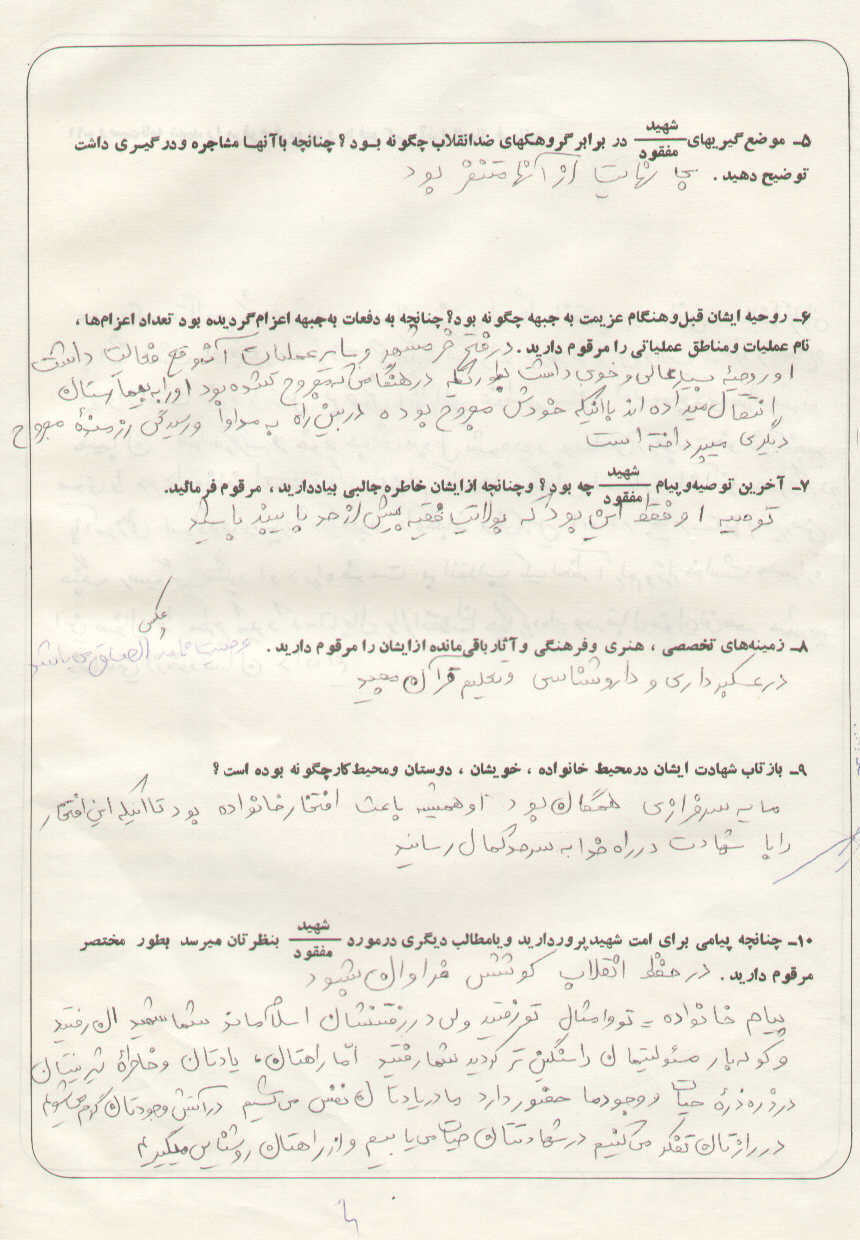 ۵ـ موضع‌گیریهای شهید / مفقود در برابر گروهکهای ضدانقلاب چگونه بود؟ چنانچه باآنها مشاجره ودرگیری داشت
توضیح دهید. بی نهایت از آنها متنفر بود
۶ـ روحیه ایشان قبل‌وهنگام عزیمت به جبهه چگونه بود؟ چنانچه به دفعات به‌جبهه اعزام‌گردیده بود تعداد اعزام‌ها،
نام عملیات ومناطق عملیاتی را مرقوم دارید. در فتح خرمشهر و سایر عملیات آنموقع فعالیت داشت
او روحیهٔ بسیار عالی و خوبی داشت بطوریکه در هنگامی که مجروح شده بود او را به بیمارستان
انتقال میداده اند باانیکه خودش مجروح بوده در بین راه به مداوا و رسیدگی رزمندهٔ مجروح
دیگری میپرداخته است
۷ـ آخرین توصیه‌وپیام شهید / مفقود چه بود؟ وچنانچه ازایشان خاطره‌جالبی بیاددارید، مرقوم فرمائید.
توصیه او فقط این بود که بولایت فقیه بیش از حد پایبند باشید
۸ـ زمینه‌های تخصصی، هنری وفرهنگی وآثارباقی‌مانده ازایشان را مرقوم دارید.
عکس
در عکسبرداری و داروشناسی و تعلیم قرآن مجید
۹ـ بازتاب شهادت ایشان درمحیط خانواده، خویشان، دوستان ومحیط‌کارچگونه بوده است؟
مایه سرفرازی همگان بود او همیشه باعث افتخار خانواده بود تا آنیکه این افتخار
را با شهادت در راه خدا به سرحد کمال رسانید
۱۰ـ چنانچه پیامی برای امت شهیدپروردارید ویامطالب دیگری درمورد شهید / مفقود بنظرتان میرسد بطور مختصر
مرقوم دارید. در حفظ انقلاب کوشش فراوان بشود
پیام خانواده = تو و امثال تو رفتید ولی در رفتنشان اسلام ماند شما شهیدان رفتید
و کوله بار مسئولیتمان را سنگین تر کردید شما رفتید امّا راهتان، یادتان و خاطرهٔ شیرینتان
در ذره ذرهٔ حیات و وجود ما حضور دارد ما در یادتان نفس می‌کشیم در آتش وجودتان گرم می‌شویم
در رازتان تفکر می‌کنیم در شهادتتان حیات می‌یابیم و از راهتان روشنایی میگیریم